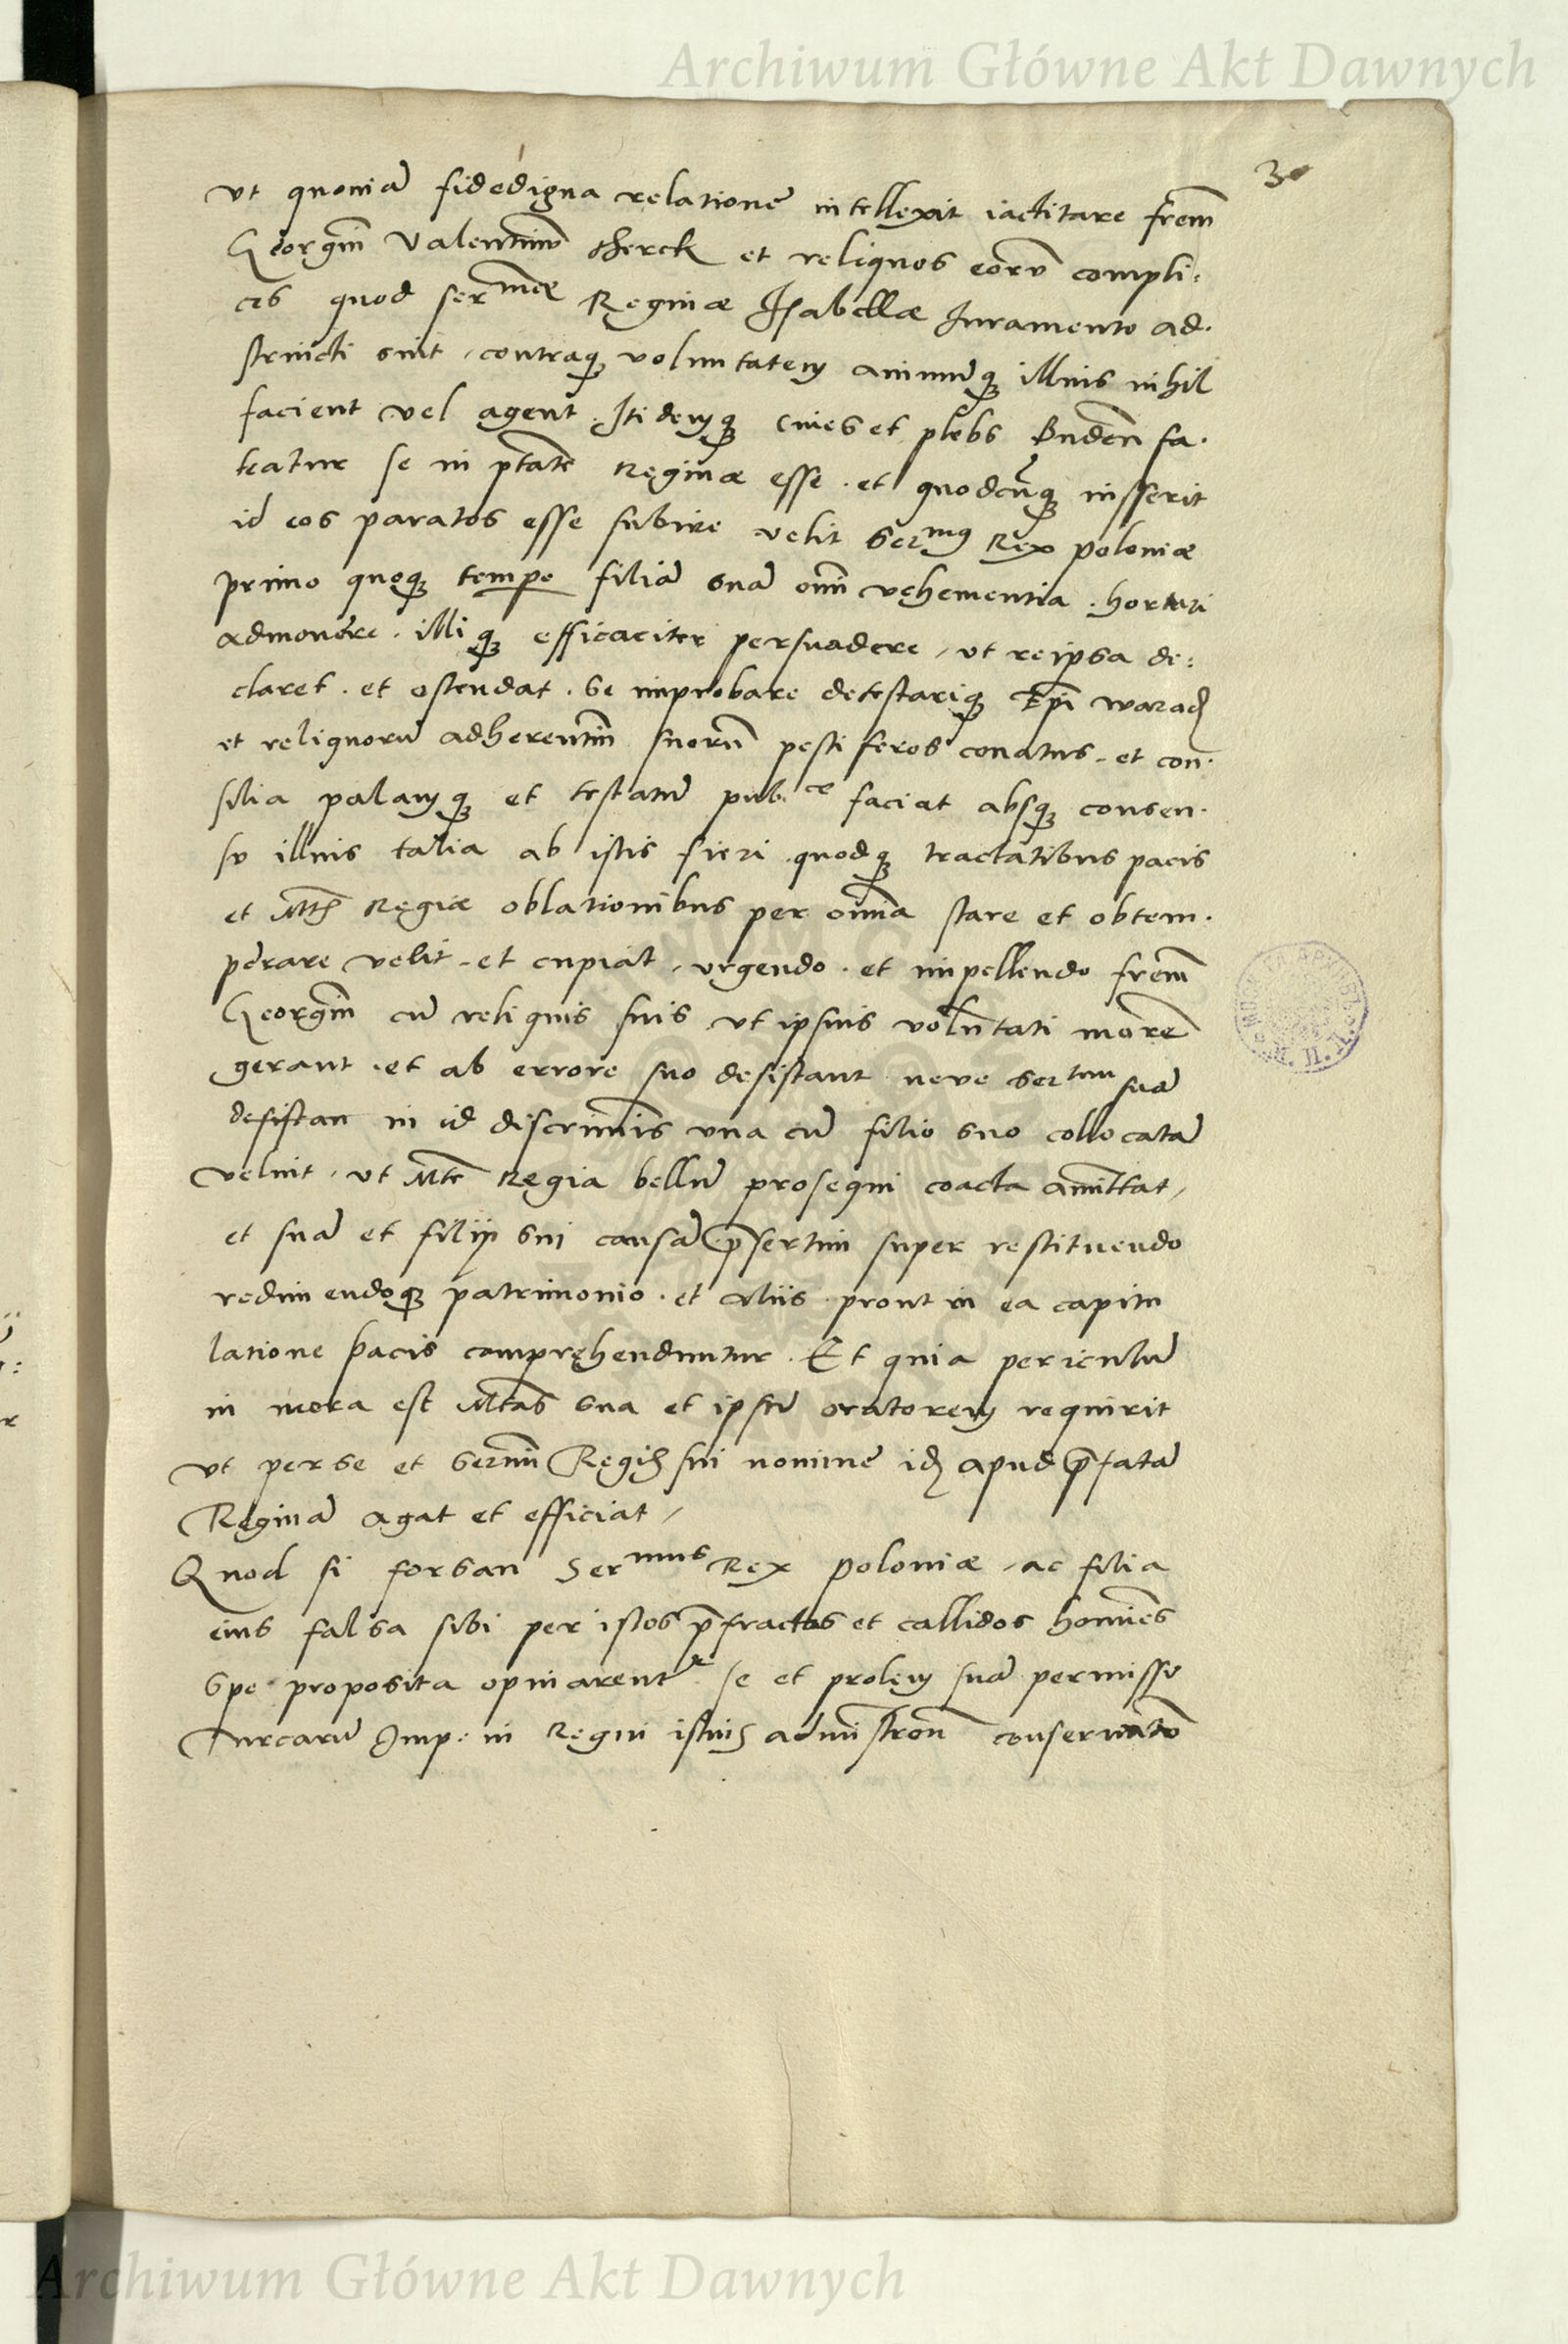 Archiwum Główne Akt Dawnych
30
vt quoniā fidedigna relatione intellexit iactitare frem̄
Georgiū Valentinū therck et reliquos eorū compli:
ces quod serᵐᵃᵉ Reginæ Isabellæ Iuramento ad.
stricti sint, contraq; voluntatem animumq; illius nihil
facient vel agent. Itidemq; Ciues et plebs Budeñ fa.
teatur se in ptāte Reginæ esse. et quodcūq; iusserit
id eos paratos esse subire velit Serᵐᵘˢ Rex Poloniæ
primo quoq; tempe filiā suā om̄i vehementia. hortari
admonere. illiq; efficaciter persuadere, vt reipsa de:
claret. et ostendat. se improbare detestariq; Epī warad
et reliquorū adherentiū suorū pestiferos conatus. et con.
silia palamq; et testatū publice faciat absq; consen.
su illius talia ab istis fieri. quodq; tractatibus pacis
et Mtis Regiæ oblationibus per om̄ia stare et obtem.
perare velit. et cupiat, vrgendo. et impellendo frem̄
Georgiū cū reliquis suis vt ipsius volūtati morē
gerant. et ab errore suo desistant neve Serᵗᵉᵐ suā
desistan in id discriminis vna cū filio suo collocatā
velint, vt Mtē Regia bellū prosequi coacta amittat,
et suā et filij sui causā p̄sertim super restituendo
redimendoq; patrimonio. et aliis. prout in ea capitu
latione pacis comprehenduntur. Et quia periculū
in mora est Mtas sua et ipsū oratorem requirit
vt per se et Sermi Regis sui nomine id apud p̄fatā
Reginā agat et efficiat,
Quod si forsan Serᵐᵘˢ Rex Poloniæ, ac filia
eius falsa sibi per istos p̄fractos et callidos homines
spe proposita opinarentʳ se et prolem suā permissu
Turcarū Imp. in Regni istius administron̄ conseruatō
Archiwum Główne Akt Dawnych